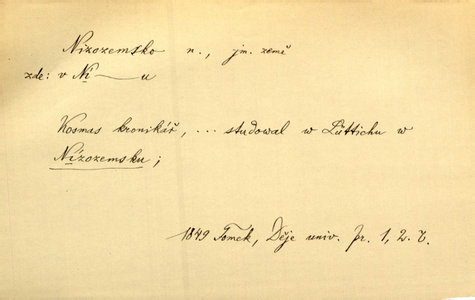 Nizozemsko n., jm. země
zde: v Ni—u
Kosmas kronikář, ... studowal w Lüttichu w
Nízozemsku;
1849 Tomek, Děje univ. Pr. 1, 2. Č.